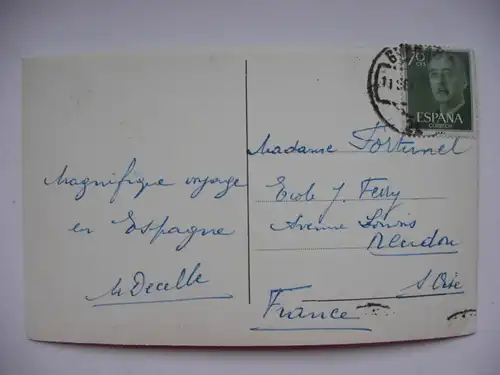 70
CTS
ESPAÑA
CORREOS
Magnifique voyage
en Espagne
M Decelle
Madame Fortunel
Ecole J. Ferry
Avenue Louvois
Meudon
S. Oise
France